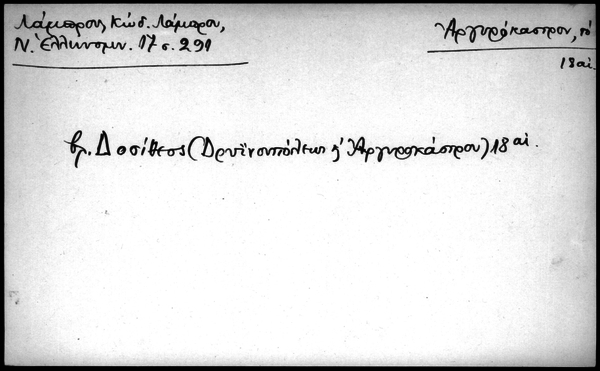 Λάμπρος, Κώδ. Λάμπρου,
Ν. Ἑλληνομν. 17 σ. 291
Ἀργυρόκαστρον, τό
18 αἰ.
βλ. Δοσίθεος (Δρυϊνουπόλεως κ' Ἀργυροκάστρου) 18 αἰ.